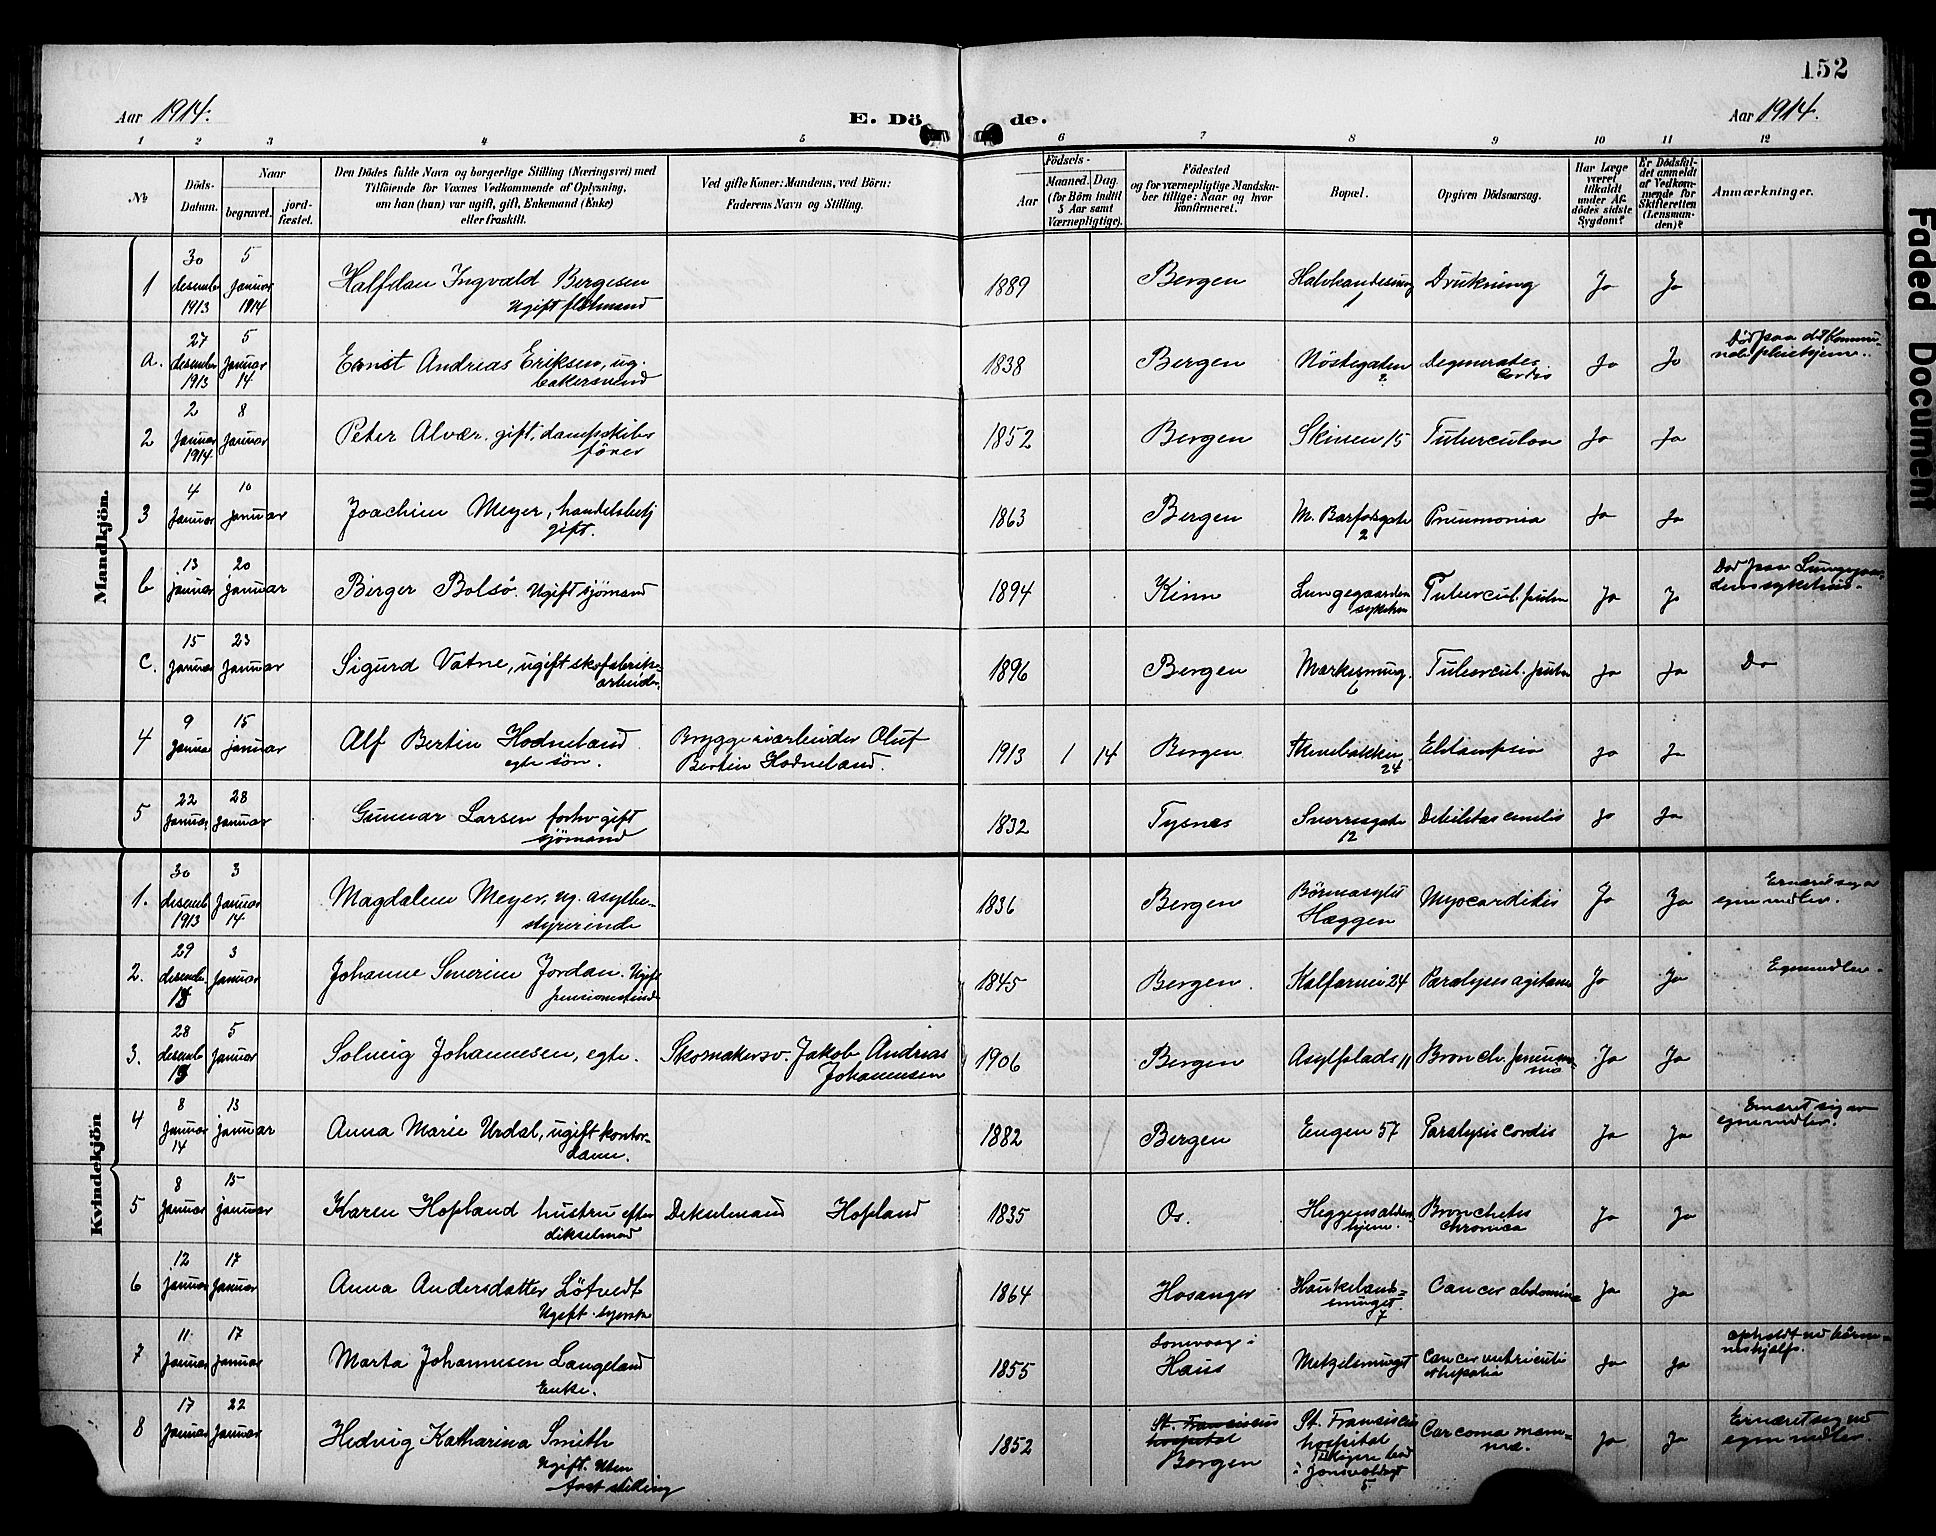 152
Aar 1914.
E. Dö de.
Aar 1914.
1 2 3 4 5 6 7 8 9 10 11 12
No
Döds-Datum.
Naar
begravet.
jord-fæstet.
Den Dödes fulde Navn og borgerlige Stilling (Næringsvei) med
Tilföiende for Voxnes Vedkommende af Oplysning,
om han (hun) var ugift, gift, Enkemand (Enke)
eller fraskilt.
Ved gifte Koner: Mandens, ved Börn:
Faderens Navn og Stilling.
Födsels-
Aar
Maaned. Dag.
(for Börn indtil
5 Aar samt
Værnepligtige).
Födested
og for værnepligtige Mandska-
ber tillige: Naar og hvor
konfirmeret.
Bopæl.
Opgiven Dödsaarsag.
Har Læge
været
tilkaldt
under Af-
dödes sidste
Sygdom?
Er Dödsfal-
det anmeldt
af Vedkom-
mende for
Skifteretten
(Lensman-
den)?
Anmærkninger.
Mandkjön.
1 30 desember 1913 5 Januar 1914 Halfdan Ingvald Bergesen Ugift 1889 Bergen 1 Drukning Ja Ja
a. 27 desember 1913 5 Januar 14 Ernst Andreas Eriksen, ug. bakersvend 1838 Bergen Nöstegaten Degeneratio Cordis Ja Ja Död paa det kommunale pleiehjem.
2 2 Januar 1914 8 Januar Peter Alvær. gift. dampskibsförer 1852 Bergen Skiven 15 Tuberculose Ja Ja
3 4 Januar 10 Januar Joachim Meyer, handelsbetj gift. 1863 Bergen M. Barfodsgate 2 Pneumonia Ja Ja
b 13 januar 20 januar Birger Bolsö. Ugift sjömand 1894 Kinn Lungegaarden Tubercul. pulm Ja Ja Död paa Lungegaardens sykehus.
C. 15 Januar 23 Januar Sigurd Vatne, ugift skofabrik-arbeider 1896 Bergen Markesmug. 6 Tubercul. pulm Ja Ja Do
4 9 Januar 15 januar Alf Bertin Hodneland egte sön. Bryggeriarbeider Oluf Bertin Hodneland. 1913 1 14 Bergen 24 Eklampsia Ja Ja
5 22 Januar 28 Januar Gunnar Larsen forhv gift sjömand 1832 Tysnes Sverresgate 12 Debilitas senilis Ja Ja
Kvindekjön
1. 30 desemb 1913 3 Januar 14 Magdalene Meyer, ug. asylbe-styrerinde 1836 Bergen Börneasylet Hæggen Myocarditis Ja Ja Ernæret sig av egne midler.
2. 29 desemb. 13 3 Januar Johanne Severine Jordan. Ugift pensionistinde 1845 Bergen. Kalfarvei 24 Paralysis agitans Ja Ja Egne midler.
3. 28 desemb 13 5 Januar Solveig Johannesen, egte. Skomakersv. Jakob Andrias Johannesen 1906 Bergen Asylplads 11 Bronch. pneumonia Ja Ja
4 8 Januar 14 13 januar Anna Marie Urdal, ugift kontor-dame. 1882 Bergen Engen 57 Paralysis cordis Ja Ja Ernæret sig av egne midler.
5 8 Januar 15 januar Karen Hopland hustru efter dikselmand Dekselmand Hopland 1835 Os. Heggens alders-hjem. Bronchitis chronica Ja Ja
6 12 Januar 17 Januar Anna Andersdatter Lötvedt Ugift. syerske 1864 Hosanger Haukelands-smuget. 7 Cancer abdomin= Ja Ja
7 11. Januar 17 Januar Marta Johannesen Langeland Enke. 1855 Haus Metzelsmuget Cancer ventriculi Ja Ja opholdt ved
8 17 Januar 22 Januar Hedvig Katharina Smith Ugift. Uten fast stilling 1852 St. Franciscus hospital Bergen St. Fransiscus hospital 5 Carcoma mam=mæ. Ja Ja Ernæret sig ved egne midler.
Faded Document